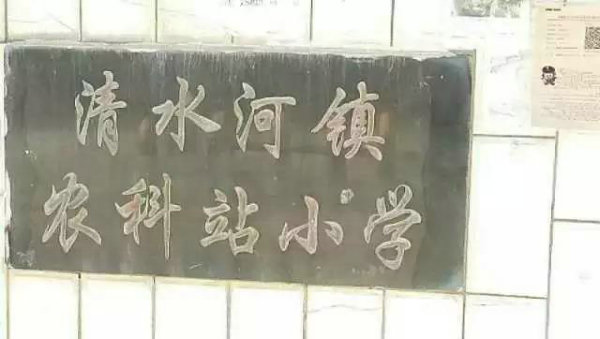 清水河镇
农科站小学